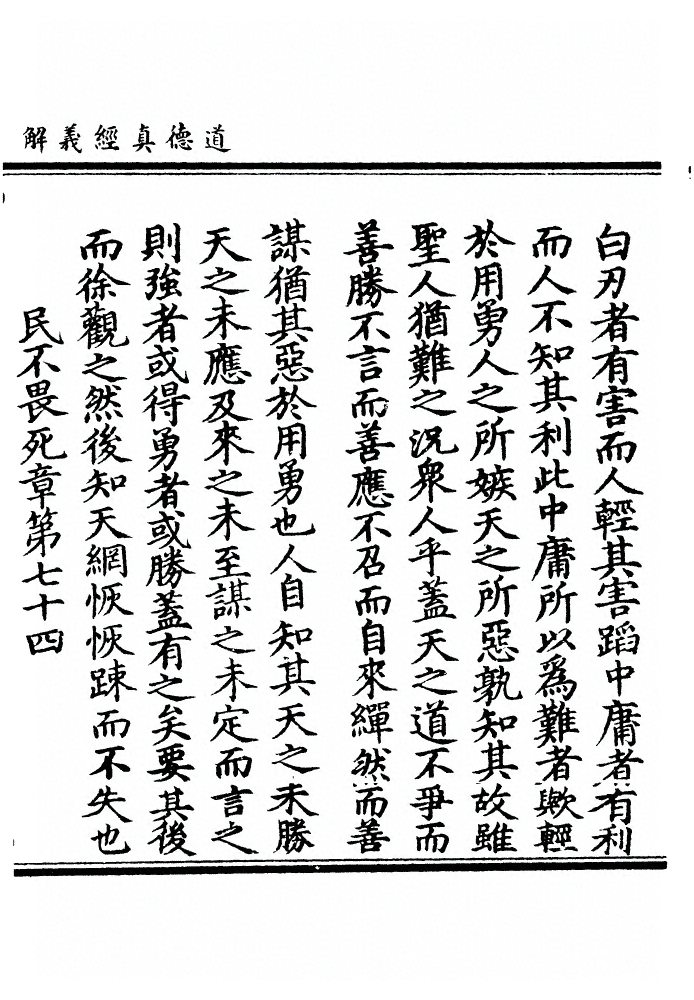 道德真經義解
白刃者有害而人輕其害蹈中庸者有利
而人不知其利此中庸所以爲難者歟輕
於用勇人之所嫉天之所惡孰知其故雖
聖人猶難之況衆人乎蓋天之道不爭而
善勝不言而善應不召而自來繟然而善
謀猶其惡於用勇也人自知其天之未勝
天之未應及來之未至謀之未定而言之
則強者或得勇者或勝蓋有之矣要其後
而徐觀之然後知天網恢恢踈而不失也
民不畏死章第七十四